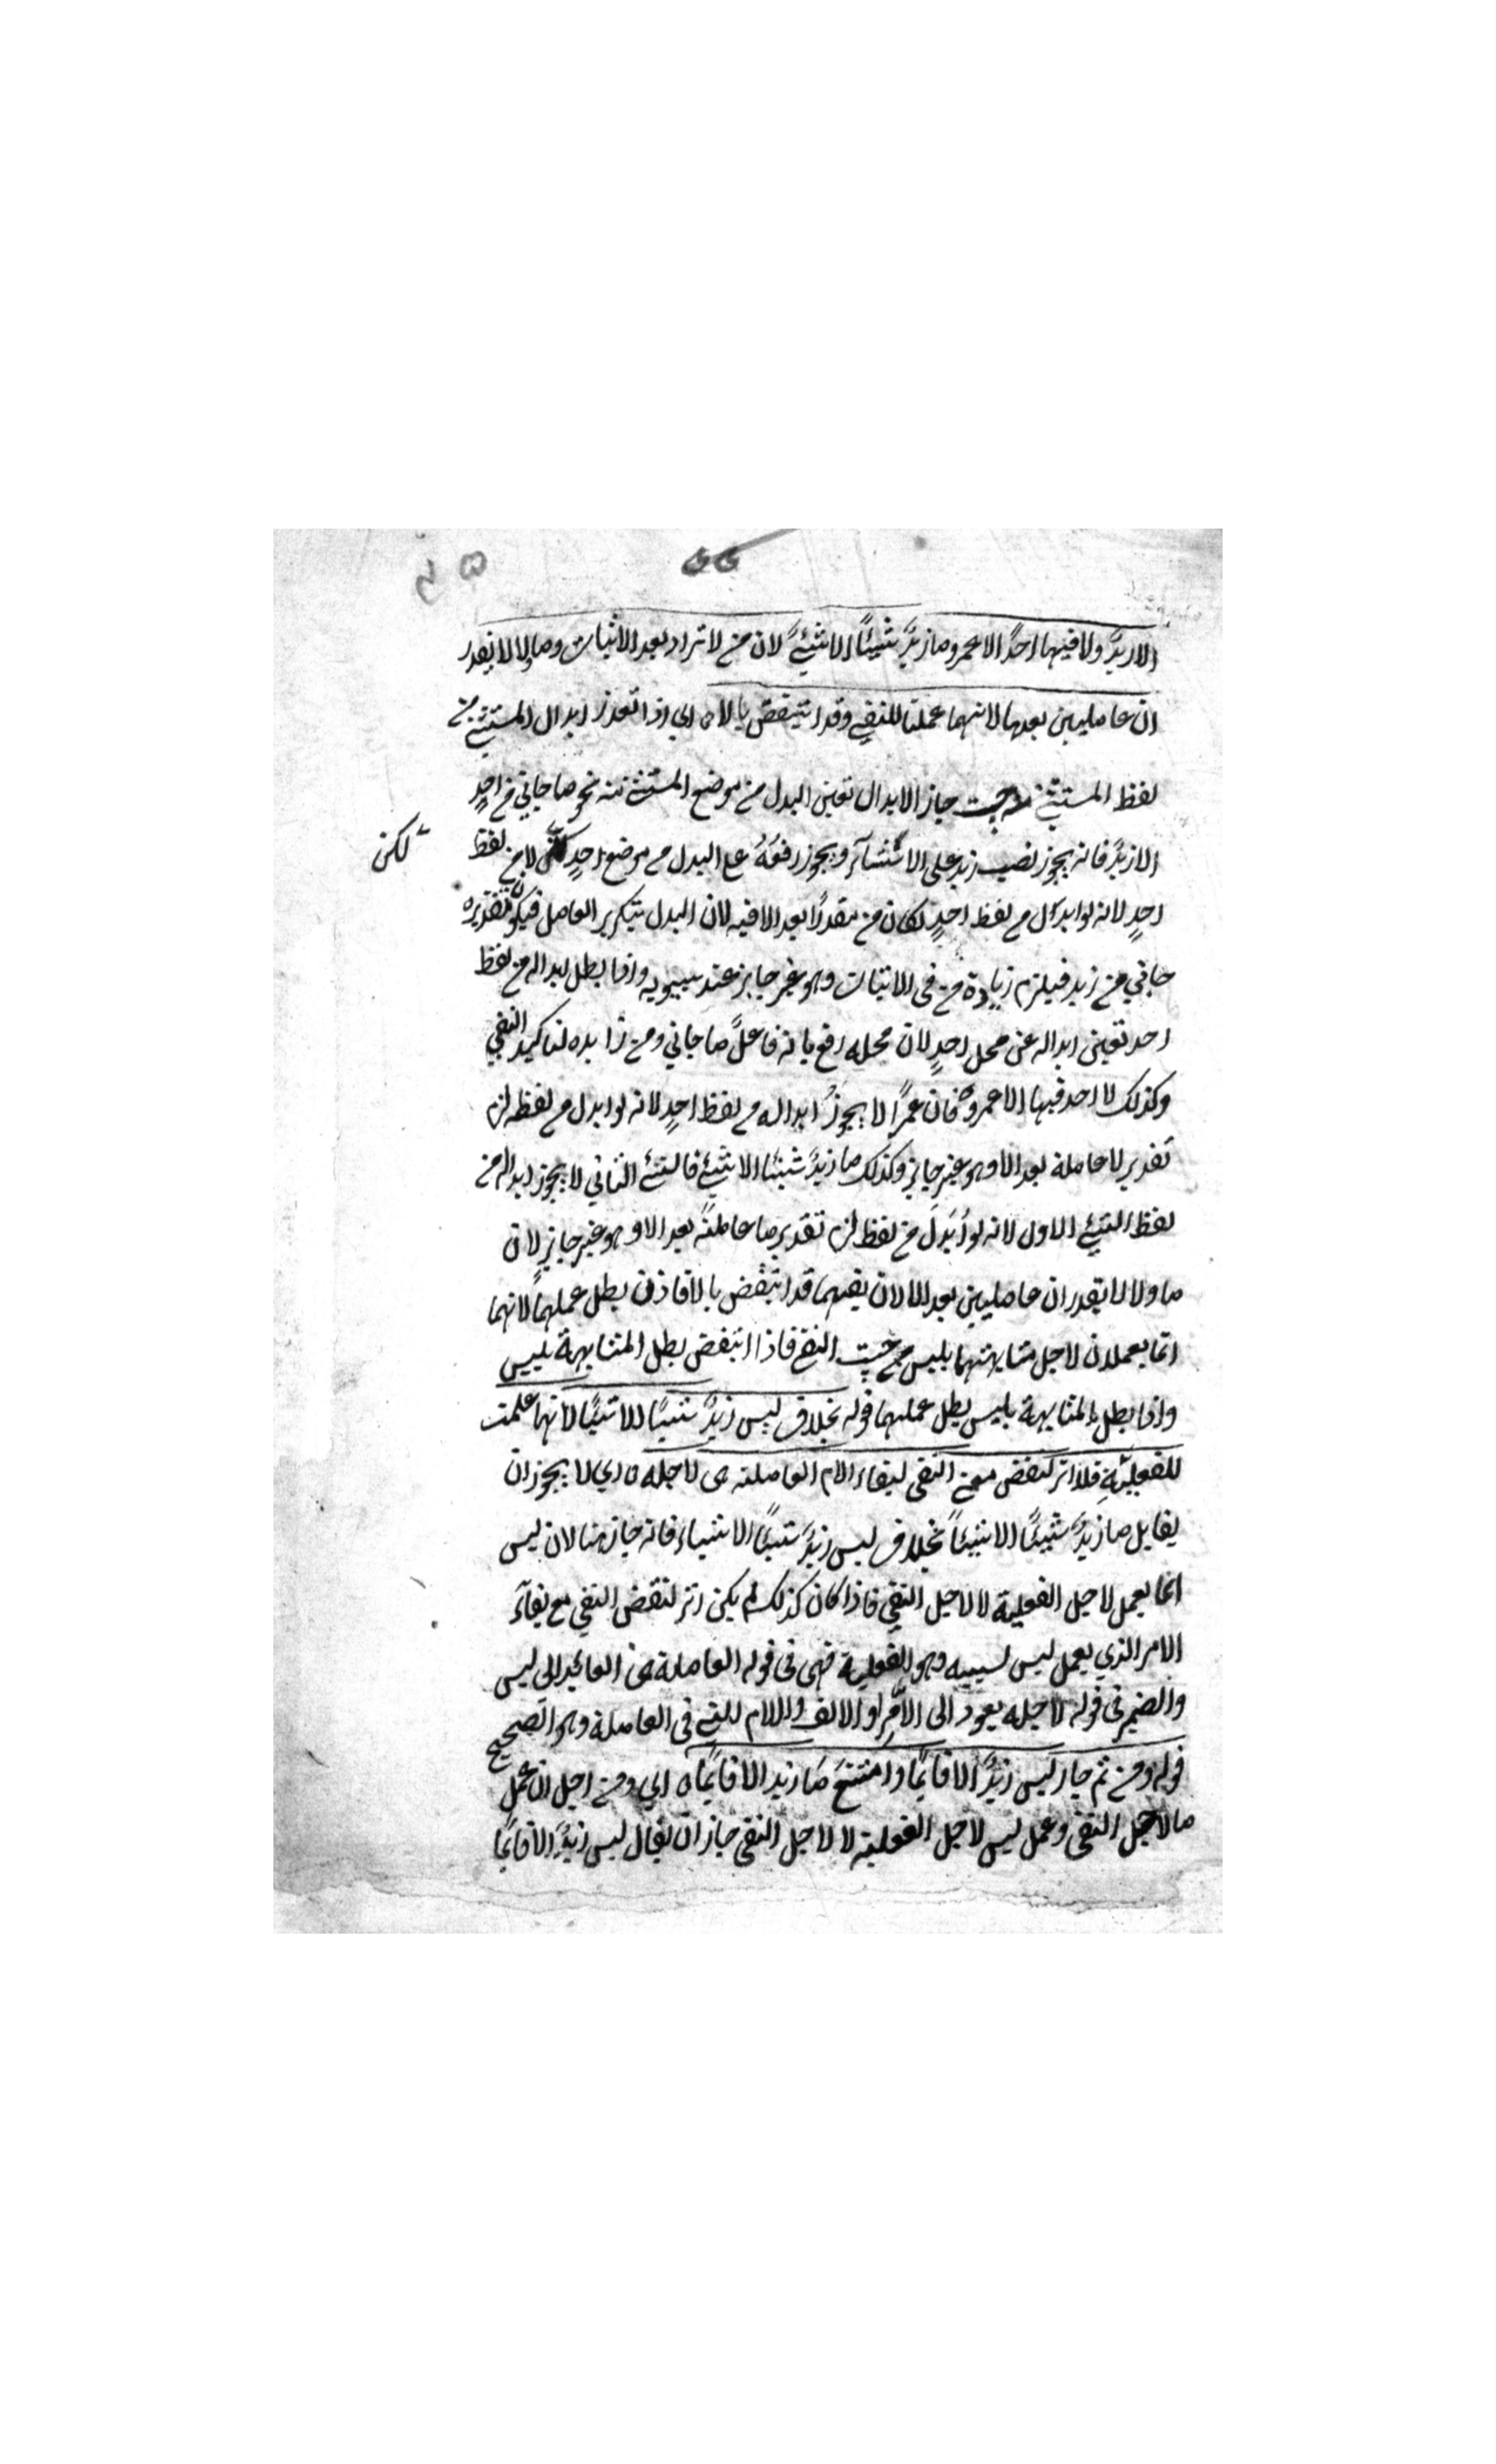 الا زيدٌ ولا فيها احدٌ الا عمرو وما زيدٌ شيئًا الا شيئٌ لان من لا تزاد بعد الاثبات وما ولا لا يقدر
ان عاملين بعدها لانهما عملتا للنفي وقد انتقض بالا اي اذا تعذر ابدال المستثنى من
لفظ المستثنى حيث جاز الابدال تعين البدل من موضع المستثنى منه نحو ما جاني من احدٍ
الا زيدٌ فانه يجوز نصب زيد على الاستثناء ويجوز رفعُهُ على البدل من موضع احدٍ لا من لفظ
لكن
احدٍ لانه لو ابدل من لفظ احدٍ لكان من مقدرًا بعد الا فيه لان البدل بتكرير العامل فيكون تقديره
جاني من زيد فيلزم زيادة من في الاثبات وهو غير جايز عند سيبويه واذا بطل ابداله من لفظ
احد تعين ابداله عن محل احدٍ لان محله رفع بانه فاعل ما جاني ومن زايده لتاكيد النفي
وكذلك لا احد فيها الا عمرو فان عمرًا لا يجوزُ ابداله من لفظ احدٍ لانه لو ابدل من لفظه لزم
تقدير لا عاملة بعد الا وهو غير جايز وكذلك ما زيدٌ شيئا الا شيئ فالشئ الثاني لا يجوز ابداله من
لفظ الشيئ الاول لانه لو اُبدلَ من لفظ لزم تقدير ما عاملةً بعد الا وهو غير جايزٍ لان
ما ولا لا يقدران عاملين بعد الا لان نفيهما قد انتقض بالا فاذن بطل عملهما لانهما
انما يعملان لاجل مشابهتهما بليس من حيث النفي فاذا انتقض بطل المشابهة بليس
واذا بطل المشابهة بليس بطل عملهما قوله بخلاف ليس زيدٌ شيئًا الا شيئًا لانها عملت
للفعليّةِ فلا اثر لنقض معنى النفي لبقاء الامر العاملة هى لاجله اي لا يجوز ان
يقابل ما زيدٌ شيئًا الا شيئاً بخلاف ليس زيدٌ شيئًا الا شيئا فانه جاز هنا لان ليس
انما يعمل لاجل الفعلية لا لاجل النفي فاذا كان كذلك لم يكن اثر لنقض النفي مع بقآء
الامر الذي يعمل ليس لسببه وهو الفعلية فهى فى قوله العاملة هى العائد الى ليس
والضمير فى قوله لاجله يعود الى الامر او الالف واللام التي فى العاملة وهو الصحيح
قوله ومن ثم جاز ليس زيدٌ الا قائمًا وامتنع ما زيد الا قايمًا اي ومن اجل ان عمل
ما لاجل النفى وعمل ليس لاجل الفعلية لا لاجل النفى جاز ان يقال ليس زيدٌ الا قايمًا